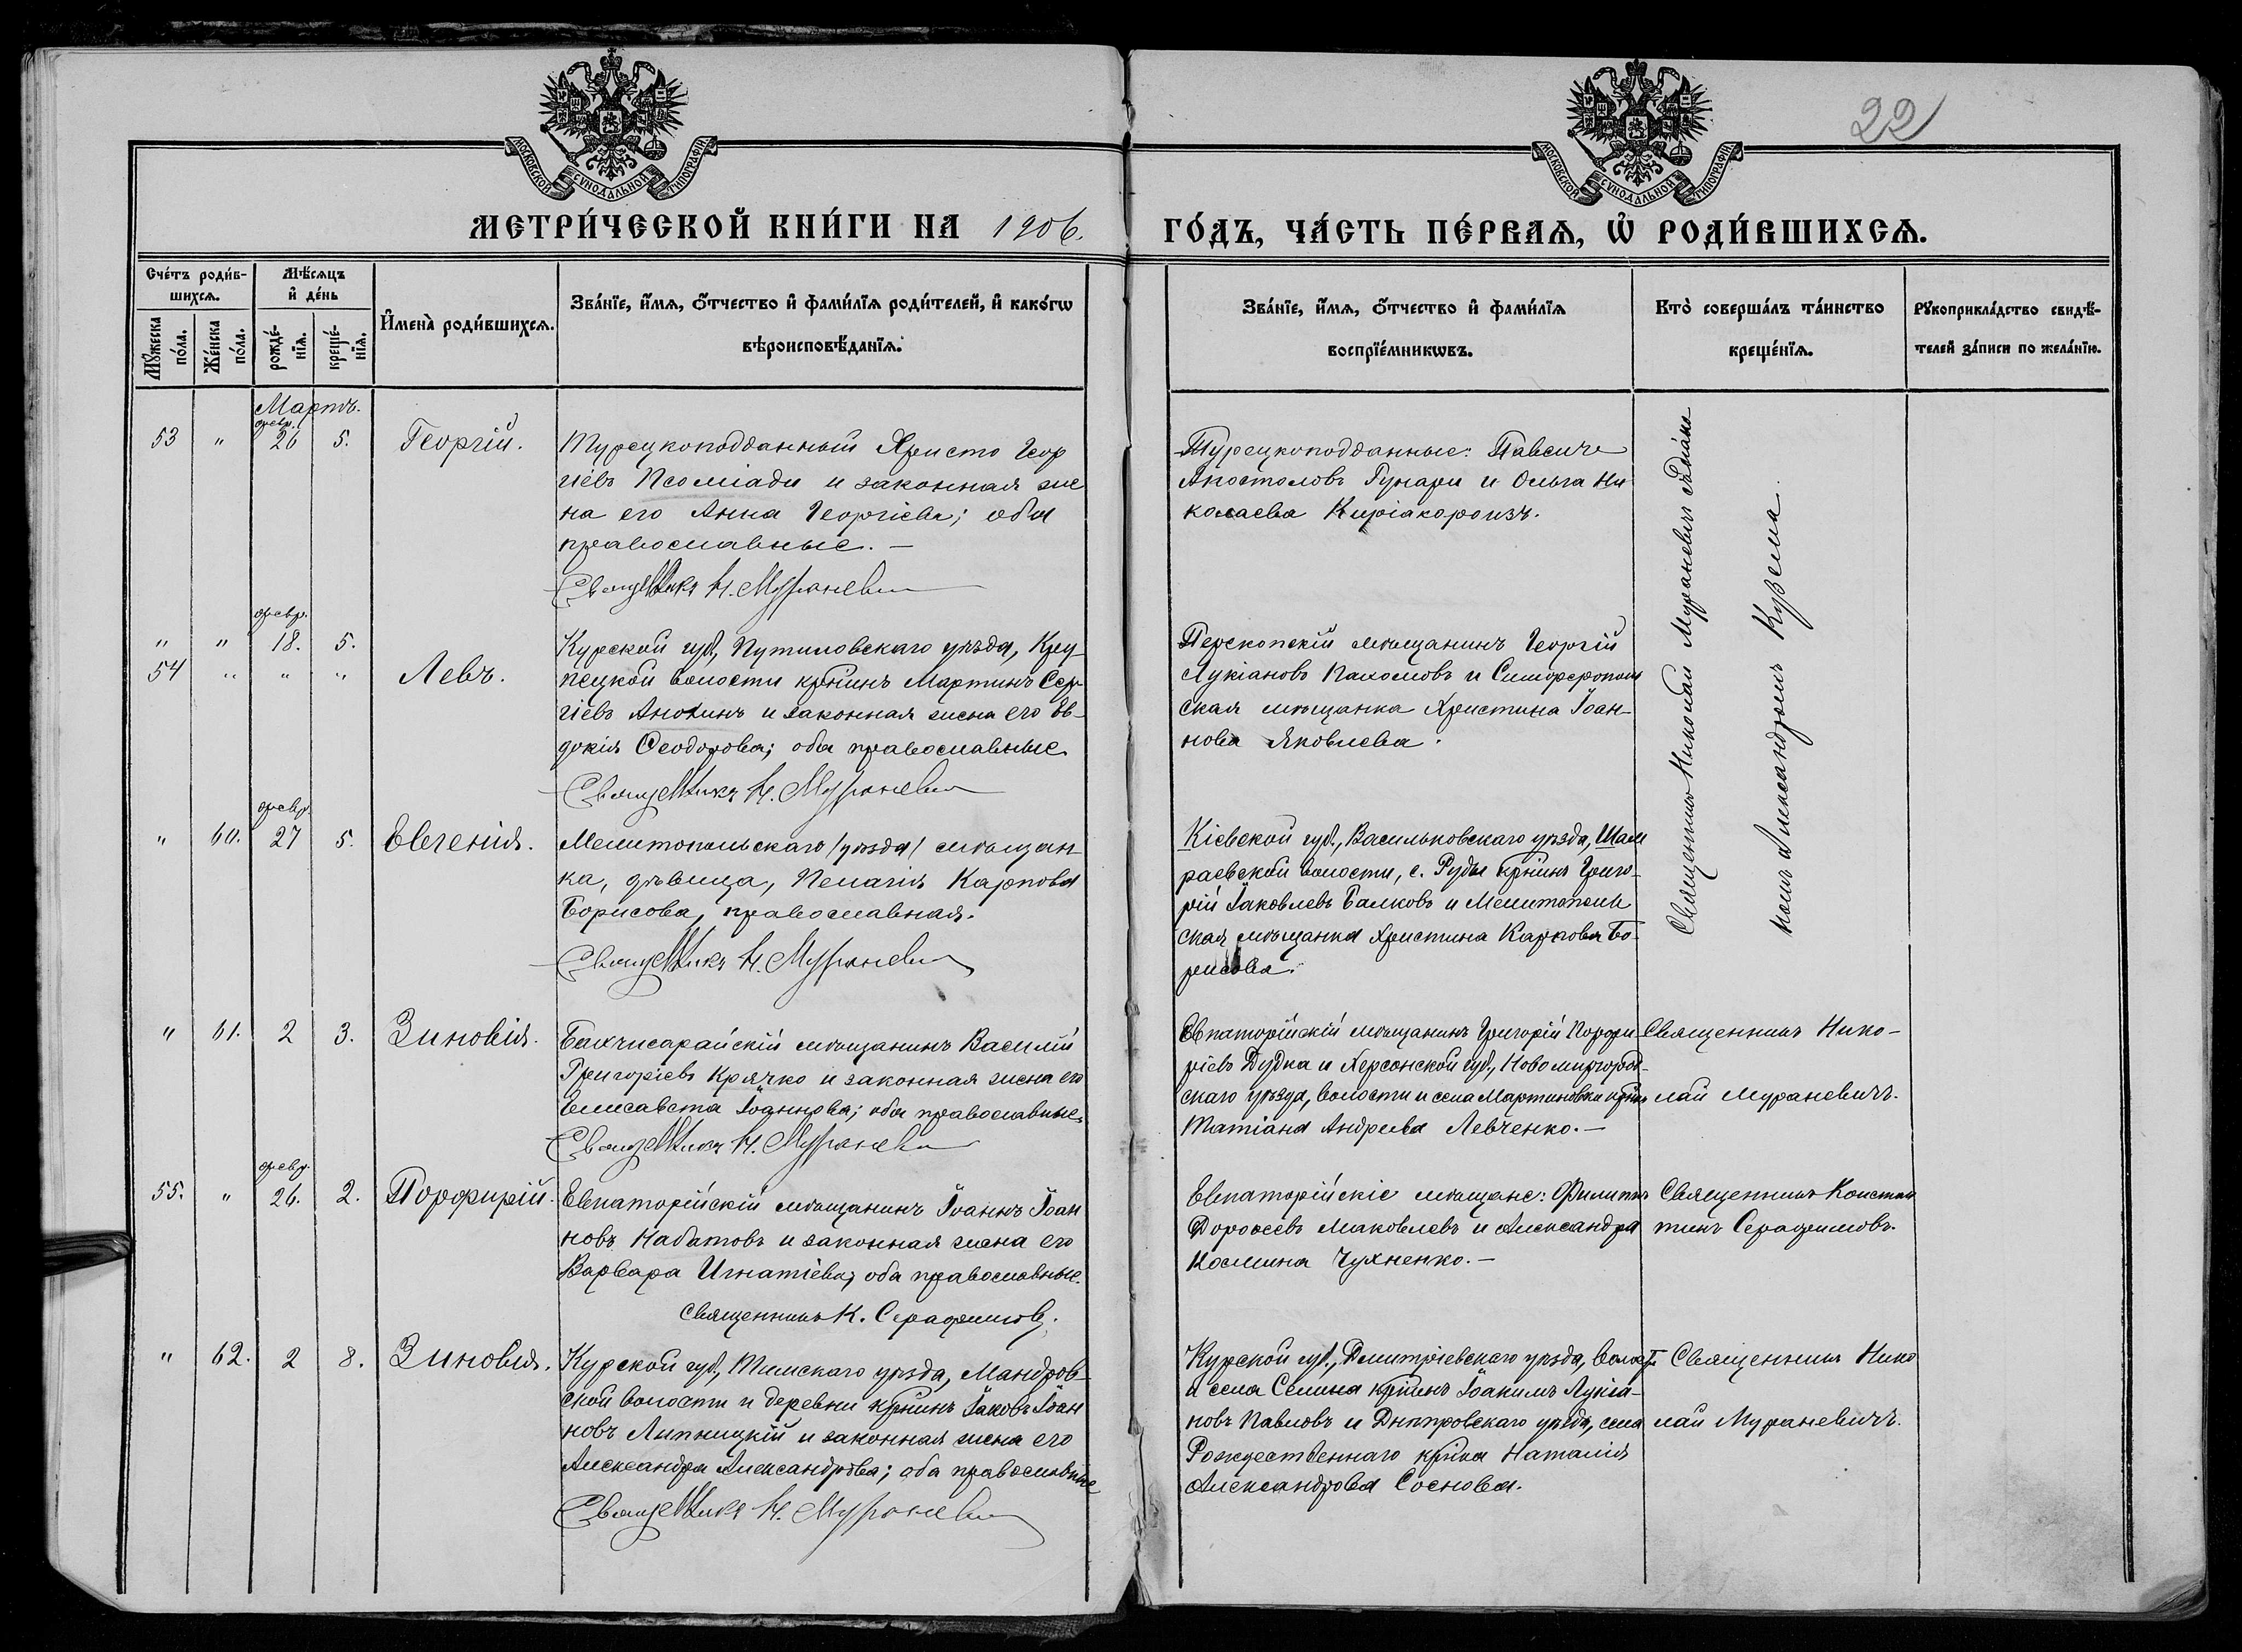 22
МОСКОВСКОЙ СѴНОДАЛЬНОЙ ТИПОГРАФІИ
МОСКОВСКОЙ СѴНОДАЛЬНОЙ ТИПОГРАФІИ
МЕТРИ́ЧЕСКОЙ КНИ́ГИ НА 1906.
ГО́ДЪ, ЧА́СТЬ ПЕ́РВАѦ, Ѡ҆ РОДИ́ВШИХСѦ.
Сче́тъ роди́в-
шихсѧ.
Мꙋ́жеска по́ла.
Же́нска по́ла.
Мѣ́сѧцъ
и҆ де́нь
рожде́-нїѧ.
креще́-нїѧ.
И҆мена̀ роди́вшихсѧ.
Зва́нїе, и҆́мѧ, ѻ҆́тчество и҆ фами́лїѧ роди́телей, и҆ како́гѡ
вѣроисповѣ́данїѧ.
Зва́нїе, и҆́мѧ, ѻ҆́тчество и҆ фами́лїѧ
воспрїе́мникѡвъ.
Кто̀ соверша́лъ та́инство
креще́нїѧ.
Рꙋкоприкла́дство свидѣ́-
телей за́писи по жела́нїю.
Мартъ.
февр.
53 " 26 5. Георгій.
Турецкоподданный Христо Геор
гіевъ Псоміади и законная же
на его Анна Георгіева; оба
православные. —
Священникъ Н. Мураневич
Турецкоподданные: Павсиче
Апостоловъ Гунари и Ольга Ни
колаева Киріакороизъ.
Священникъ Николай Мураневичъ съ діако
номъ Александромъ Кузема
февр.
" " 18. 5.
54 " " " Левъ.
Курской губ., Путиловскаго уѣзда, Кру
пецкой волости кр҃нинъ Мартинъ Сер
гіевъ Анохинъ и законная жена его Ев-
докія Ѳеодорова; оба православные.
Священникъ Н. Мураневич
Перекопскій мѣщанинъ Георгій
Лукіановъ Пахомовъ и Симферополь
ская мѣщанка Христина Іоан-
нова Яковлева.
февр.
" 60. 27 5. Евгенія.
Мелитопольскаго /уѣзда/ мѣщан
ка, дѣвица, Пелагія Карпова
Борисова, православная.
Священникъ Н. Мураневич
Кіевской губ., Васильковскаго уѣзда, Шам
раевской волости, с. Руды кр҃нинъ Григо-
рій Іаковлевъ Балковъ и Мелитополь
ская мѣщанка Христина Карпова Бо-
рисова.
" 61. 2 3. Зиновія.
Бахчисарайскій мѣщанинъ Василій
Григоріевъ Крячко и законная жена его
Елисавета Іоаннова; оба православные.
Священникъ Н. Мураневич
Евпаторійскій мѣщанинъ Григорій Порфи
ріевъ Дудка и Херсонской губ., Новомиргород-
скаго уѣзда, волости и села Мартиновки кр҃нка
Татіана Андреева Левченко. —
Священникъ Нико-
лай Мураневичъ.
февр.
55. " 26. 2. Порфирій.
Евпаторійскій мѣщанинъ Іоаннъ Іоан
новъ Набатовъ и законная жена его
Варвара Игнатіева; оба православные.
Священникъ К. Серафимовъ.
Евпаторійскіе мѣщане: Филиппъ
Дороѳеевъ Маковлевъ и Александра
Космина Чухненко. —
Священникъ Констан
тинъ Серафимовъ.
" 62. 2 8. Зиновія.
Курской губ., Тимскаго уѣзда, Мандров-
ской волости и деревни кр҃нинъ Іаковъ Іоан
новъ Липницкій и законная жена его
Александра Александрова; оба православные
Священникъ Н. Мураневич
Курской губ., Дмитріевскаго уѣзда, волости
и села Селина кр҃нинъ Іоакимъ Лукіа-
новъ Павловъ и Днѣпровскаго уѣзда, села
Рождественнаго кр҃нка Наталія
Александрова Соснова.
Священникъ Нико
лай Мураневичъ.